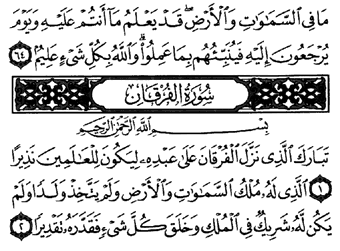 مَا فِي السَّمَـٰوَٰتِ وَالْأَرْضِ ۖ قَدْ يَعْلَمُ مَا أَنتُمْ عَلَيْهِ وَيَوْمَ
يُرْجَعُونَ إِلَيْهِ فَيُنَبِّئُهُم بِمَا عَمِلُوا ۗ وَاللَّهُ بِكُلِّ شَيْءٍ عَلِيمٌ ٦٤
سُورَةُ الْفُرْقَانِ
بِسْمِ اللَّهِ الرَّحْمَـٰنِ الرَّحِيمِ
تَبَارَكَ الَّذِي نَزَّلَ الْفُرْقَانَ عَلَىٰ عَبْدِهِ لِيَكُونَ لِلْعَالَمِينَ نَذِيرًا
١ الَّذِي لَهُ مُلْكُ السَّمَـٰوَٰتِ وَالْأَرْضِ وَلَمْ يَتَّخِذْ وَلَدًا وَلَمْ
يَكُن لَّهُ شَرِيكٌ فِي الْمُلْكِ وَخَلَقَ كُلَّ شَيْءٍ فَقَدَّرَهُ تَقْدِيرًا ٢